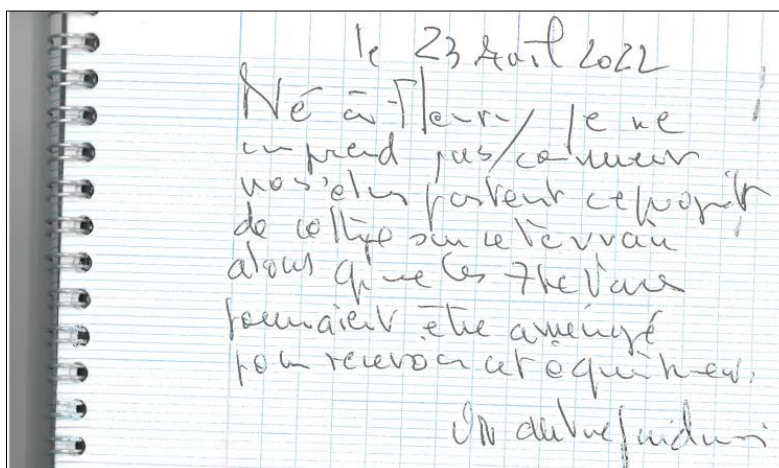 le 23 Avril 2022
Né à Fleury, je ne
comprend pas comment
nos élus portent ce projet
de collège sur ce terrain
alors que les 7 hectare
pourraient être aménagé
pour recevoir cet équipement.
Un autre